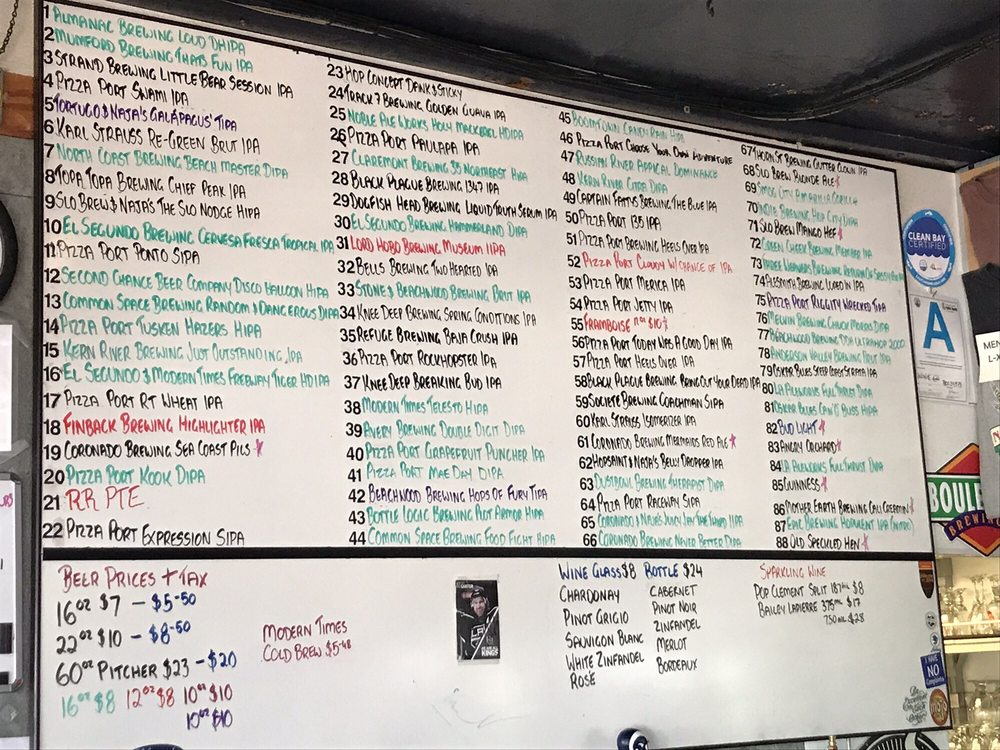 1 Almanac Brewing Loud DHIPA
2 Mumford Brewing Thats Fun IPA
3 Strand Brewing Little Bear Session IPA
4 Pizza Port Swami IPA
5 Tortugo $ Naja's Galápagus' TIPA
6 Karl Strauss Re-Green Brut IPA
7 North Coast Brewing Beach Master DIPA
8 Topa Topa Brewing Chief Peak IPA
9 Slo Brew $ Naja's The Slo Nodge HIPA
10 El Segundo Brewing Cervesa Fresca Tropical IPA
11 Pizza Port Ponto SIPA
12 Second Chance Beer Company Disco Balloon HIPA
13 Common Space Brewing Random $ Dangerous DIPA
14 Pizza Port Tusken Hazers HIPA
15 Kern River Brewing Just Outstanding IPA
16 El Segundo $ Modern Times Freeway Tiger HDIPA
17 Pizza Port RT Wheat IPA
18 Finback Brewing Highlighter IPA
19 Coronado Brewing Sea Coast Pils *
20 Pizza Port Kook DIPA
21 RR PTE
22 Pizza Port Expression SIPA
23 Hop Concept Dank $ Sticky
24 Track 7 Brewing Golden Guava IPA
25 Noble Ale Works Holy Mackerel HDIPA
26 Pizza Port Paulapa IPA
27 Claremont Brewing 35 Northeast HIPA
28 Black Plague Brewing 1347 IPA
29 Dogfish Head Brewing Liquid Truth Serum IPA
30 El Segundo Brewing Hammerland DIPA
31 Lord Hobo Brewing Museum IIPA
32 Bells Brewing Two Hearted IPA
33 Stone $ Beachwood Brewing Brut IPA
34 Knee Deep Brewing Spring Conditions IPA
35 Refuge Brewing Baja Crush IPA
36 Pizza Port Rockhopster IPA
37 Knee Deep Breaking Bud IPA
38 Modern Times Telesto HIPA
39 Avery Brewing Double Digit DIPA
40 Pizza Port Grapefruit Puncher IPA
41 Pizza Port Mae Day DIPA
42 Beachwood Brewing Hops of Fury TIPA
43 Bottle Logic Brewing Plot Armor HIPA
44 Common Space Brewing Food Fight HIPA
45 Boomtown Candy Rain HIPA
46 Pizza Port Choose Your Own Adventure
47 Russian River Apical Dominance
48 Kern River Citra DIPA
49 Captain Fatty's Brewing The Blue IPA
50 Pizza Port 135 IPA
51 Pizza Port Brewing Heels Over IPA
52 Pizza Port Cloudy w/ Chance of IPA
53 Pizza Port Merica IPA
54 Pizza Port Jetty IPA
55 Framboise $10 *
56 Pizza Port Today Was A Good Day IPA
57 Pizza Port Heels Over IPA
58 Black Plague Brewing Bring Out Your Dead IPA
59 Societe Brewing Coachman SIPA
60 Karl Strauss Isomerizer IPA
61 Coronado Brewing Mermaids Red Ale *
62 Hopsaint $ Naja's Belly Dropper IPA
63 Dustbowl Brewing Therapist DIPA
64 Pizza Port Raceway SIPA
65 Coronado $ Najas Juicy Jay The Third IIPA
66 Coronado Brewing Never Better DIPA
67 Thorn St Brewing Gutter Clown IPA
68 Slo Brew Blonde Ale *
69 Smog City Amarilla Gorilla
70 Indie Brewing Hop City DIPA
71 Slo Brew Mango Hef *
72 Coven Creek Brewing IPA
73 Three Weavers Brewing Return of
74 Alesmith Brewing Luped in IPA
75 Pizza Port Riggity Wrecked TIPA
76 Melvin Brewing Chuck Morris DIPA
77 Beachwood Brewing DDH Ultrahop 2000
78 Anderson Valley Brewing Brut IPA
79 Oskar Blues Steep Coast Strata IPA
80 LA Aleworks Full Thrust DIPA
81 Oskar Blues Can'O Bliss HIPA
82 Bud Light *
83 Angry Orchard *
84 LA Aleworks Full Thrust DIPA
85 Guinness *
86 Mother Earth Brewing Cali Creamin *
87 Epic Brewing Hopulent IPA (Nitro)
88 Old Speckled Hen *
Beer Prices + Tax
16oz $7 – $5-50
22oz $10 – $8-50
60oz Pitcher $23 – $20
16oz $8 12oz $8 10oz $10
10oz $10
Modern Times
Cold Brew $5-48
Wine Glass $8 Bottle $24
Chardonay
Pinot Grigio
Sauvigon Blanc
White Zinfandel
Rosé
Cabernet
Pinot Noir
Zinfandel
Merlot
Bordeaux
Sparkling Wine
Pop Clement Split 187ml $8
Bailey Lapierre 375ml $17
750ml $28
KINGS
CLEAN BAY
CERTIFIED
A
BOULE
BREWIN
I HAVE
NO